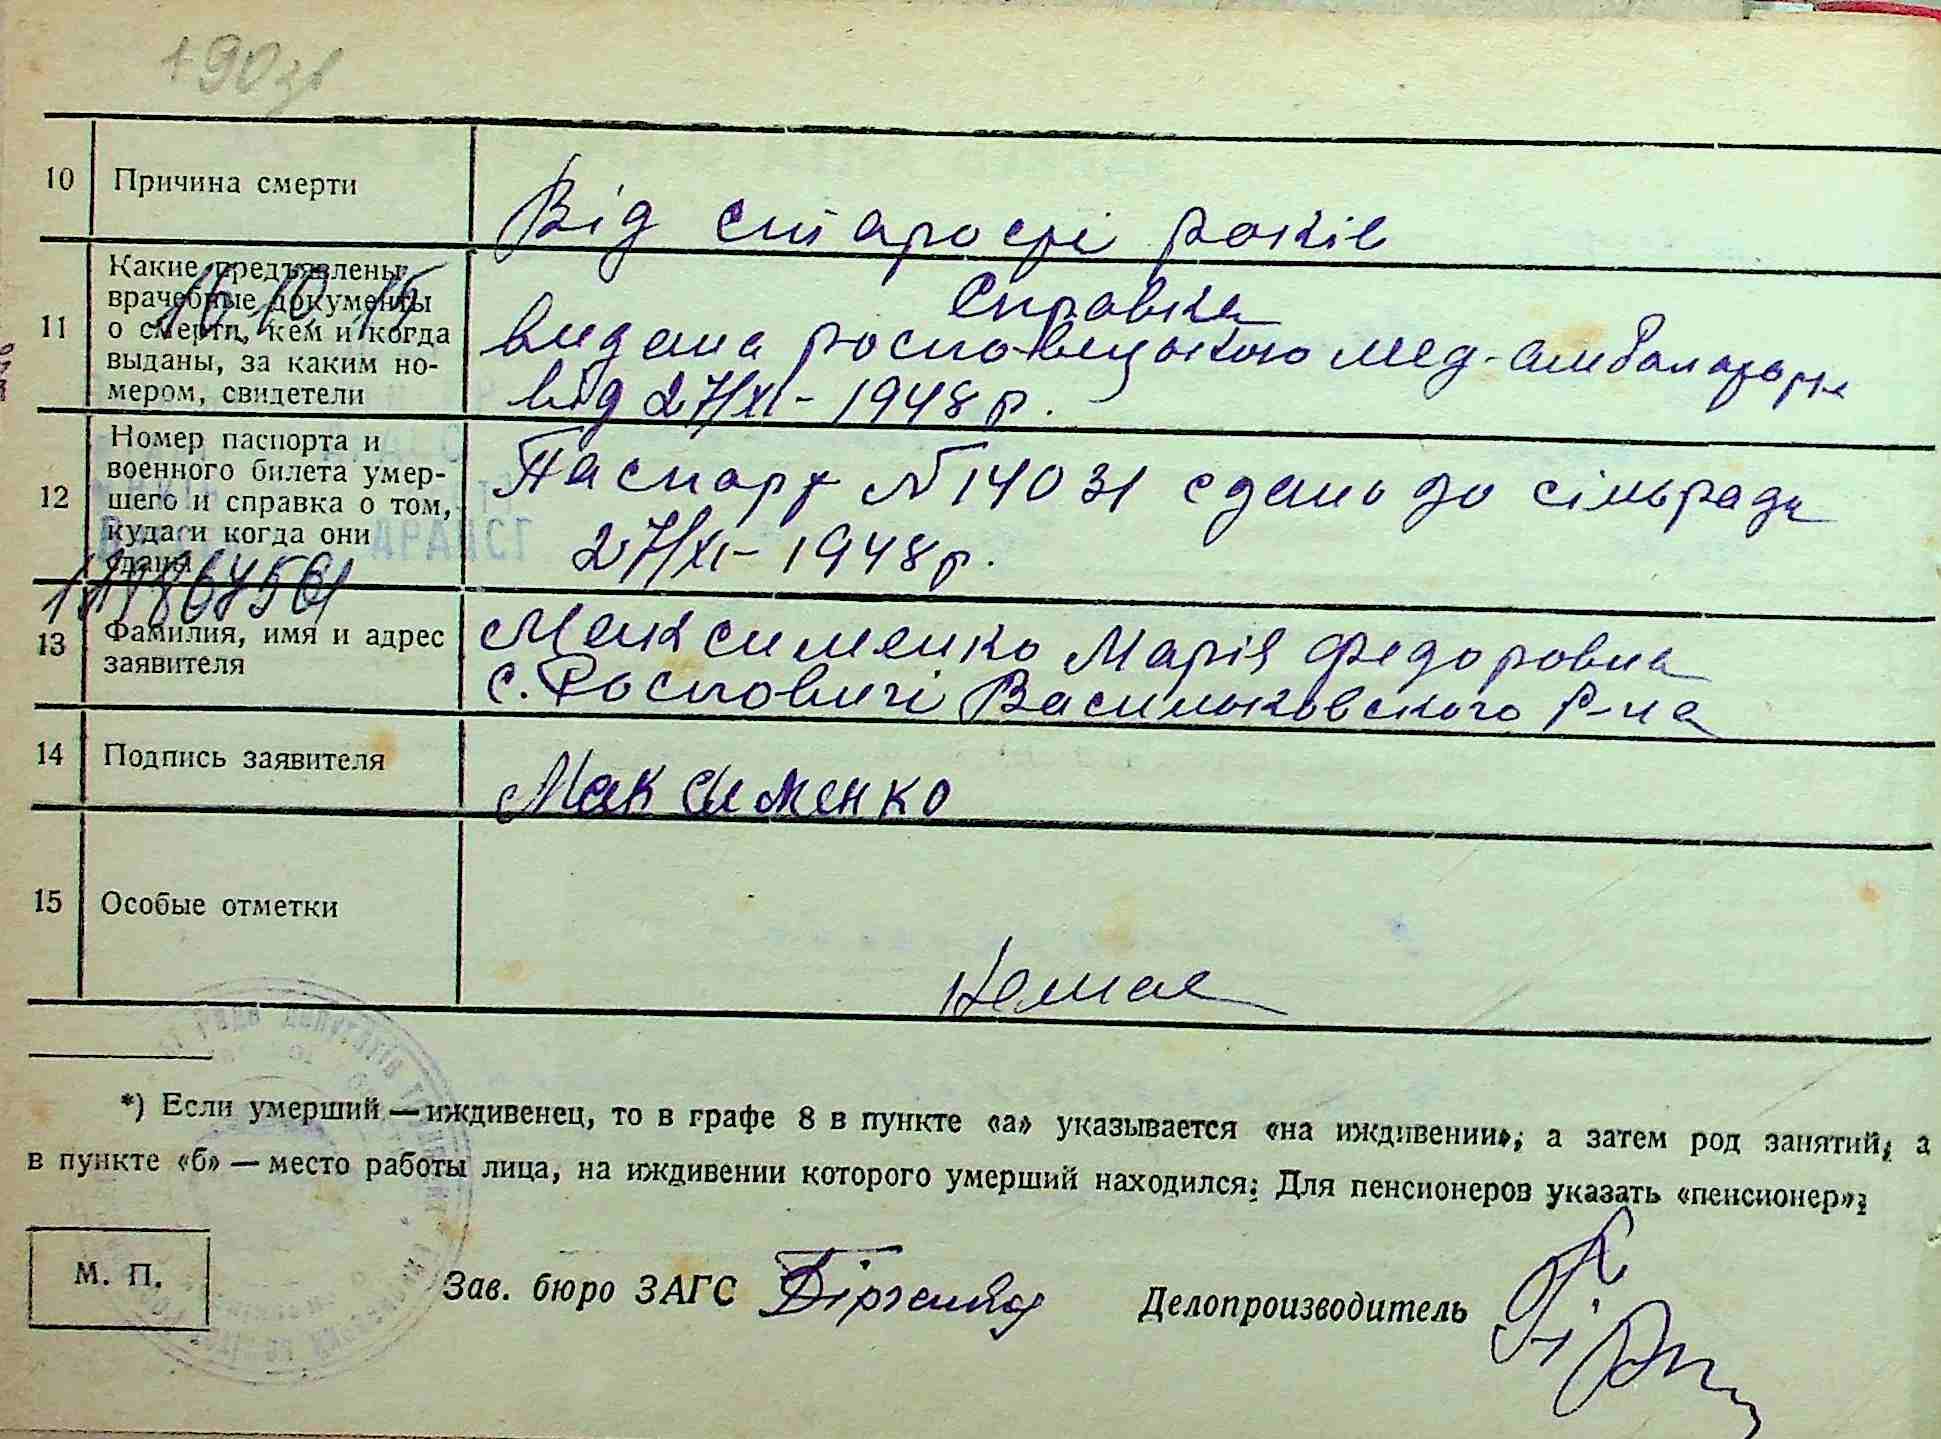 +90
10 Причина смерти
Від старості років
11 Какие предъявлены
врачебные документы
о смерти, кем и когда
выданы, за каким но-
мером, свидетели
16.10.15
Справка
видана ростовецькою мед-амбалаторіє
від 27/XI-1948р.
12 Номер паспорта и
военного билета умер-
шего и справка о том,
куда и когда они
сданы
Паспорт №14031 сдано до сільради
27/XI-1948р.
13 Фамилия, имя и адрес
заявителя
Максименко Марія Федоровна
с. Ростовичі Васильковского р-на
14 Подпись заявителя
Максименко
15 Особые отметки
Немає
*) Если умерший — иждивенец, то в графе 8 в пункте «а» указывается «на иждивении», а затем род занятий, а
в пункте «б» — место работы лица, на иждивении которого умерший находился; Для пенсионеров указать «пенсионер»;
М. П.
Зав. бюро ЗАГС
Делопроизводитель